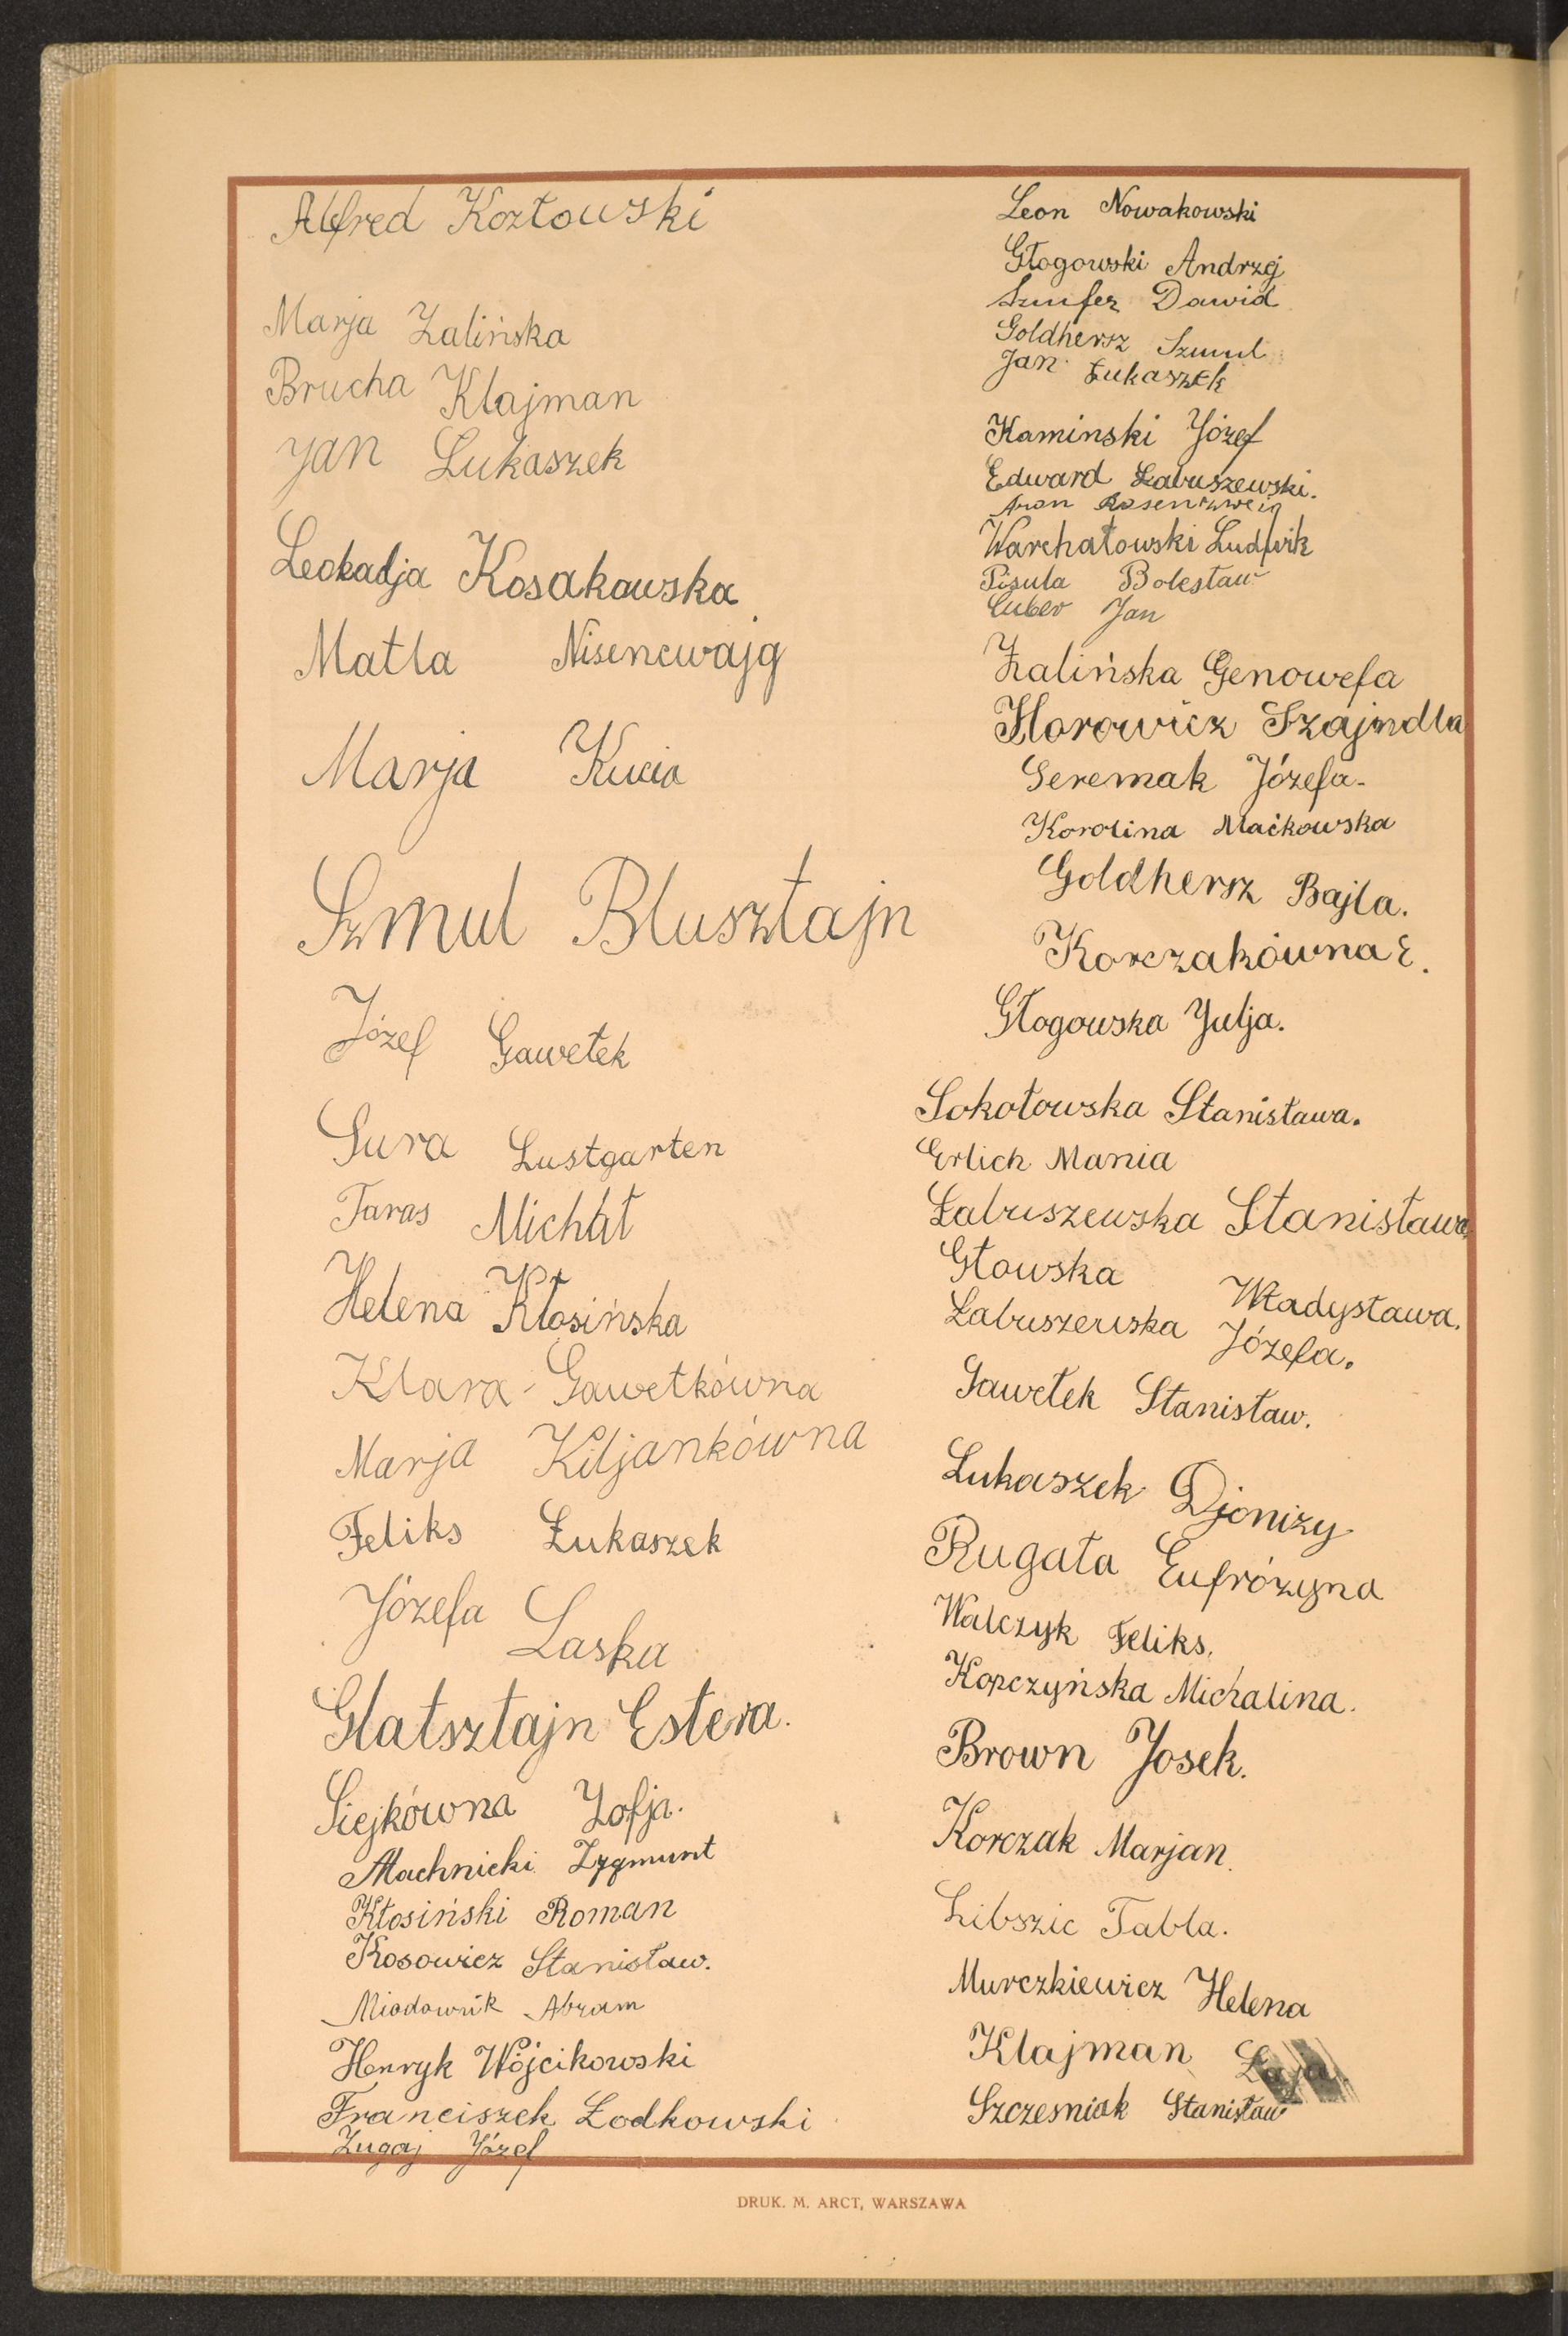 Alfred Kozłowski
Marja Zalińska
Brucha Klajman
Jan Łukaszek
Leokadja Kosakowska
Matla Nisencwajg
Marja Kucia
Szmul Blusztajn
Józef Gawełek
Sura Lustgarten
Taras Michał
Helena Kłosińska
Klara Gawełkówna
Marja Kiljankówna
Feliks Łukaszek
Józefa Laska
Glatsztajn Estera.
Siejkówna Zofja.
Machnicki Zygmunt
Kłosiński Roman
Kosowicz Stanisław.
Miodownik Abram
Henryk Wójcikowski
Franciszek Łodkowski
Zugaj Józef
Leon Nowakowski
Głogowski Andrzej
Szmfer Dawid
Goldhersz Szmul
Jan Łukaszek
Kaminski Józef
Edward Łabuszewski.
Aron Rosenzweig
Warchałowski Ludwik
Pisula Bolesław
Cuber Jan
Zalińska Genowefa
Horowicz Szajndla
Seremak Józefa
Karolina Maćkowska
Goldhersz Bajla.
Korczakówna E.
Głogowska Julja.
Sokołowska Stanisława.
Erlich Mania
Łabuszewska Stanisława
Głowska Władysława.
Łabuszewska Józefa.
Gawełek Stanisław.
Łukaszek Djonizy
Rugała Eufrózyna
Walczyk Feliks.
Kopczyńska Michalina.
Brown Josek.
Korczak Marjan.
Libszic Tabla.
Murczkiewicz Helena
Klajman Łaja.
Szczesniak Stanisław
DRUK. M. ARCT, WARSZAWA